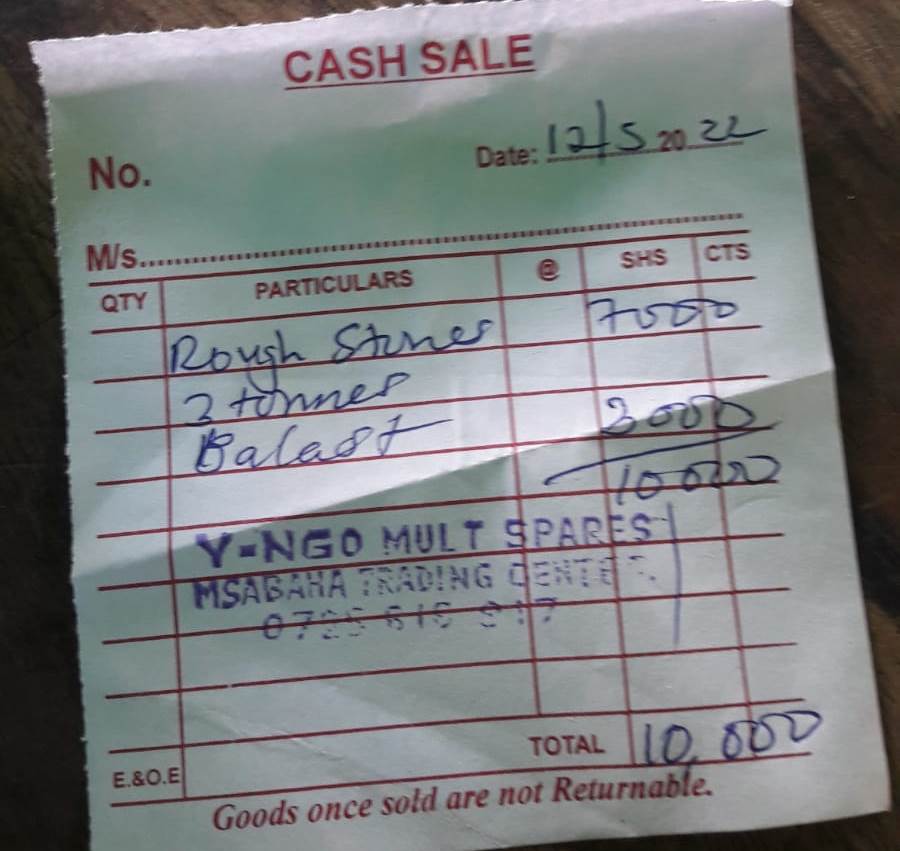 CASH SALE
No.
Date: 12/5 2022
M/s
QTY PARTICULARS @ SHS CTS
Rough Stones 7000
tonnes
Balast 3000
10000
Y-NGO MULT SPARES
MSABAHA TRADING CENTER
TOTAL 10,000
E.&O.E
Goods once sold are not Returnable.